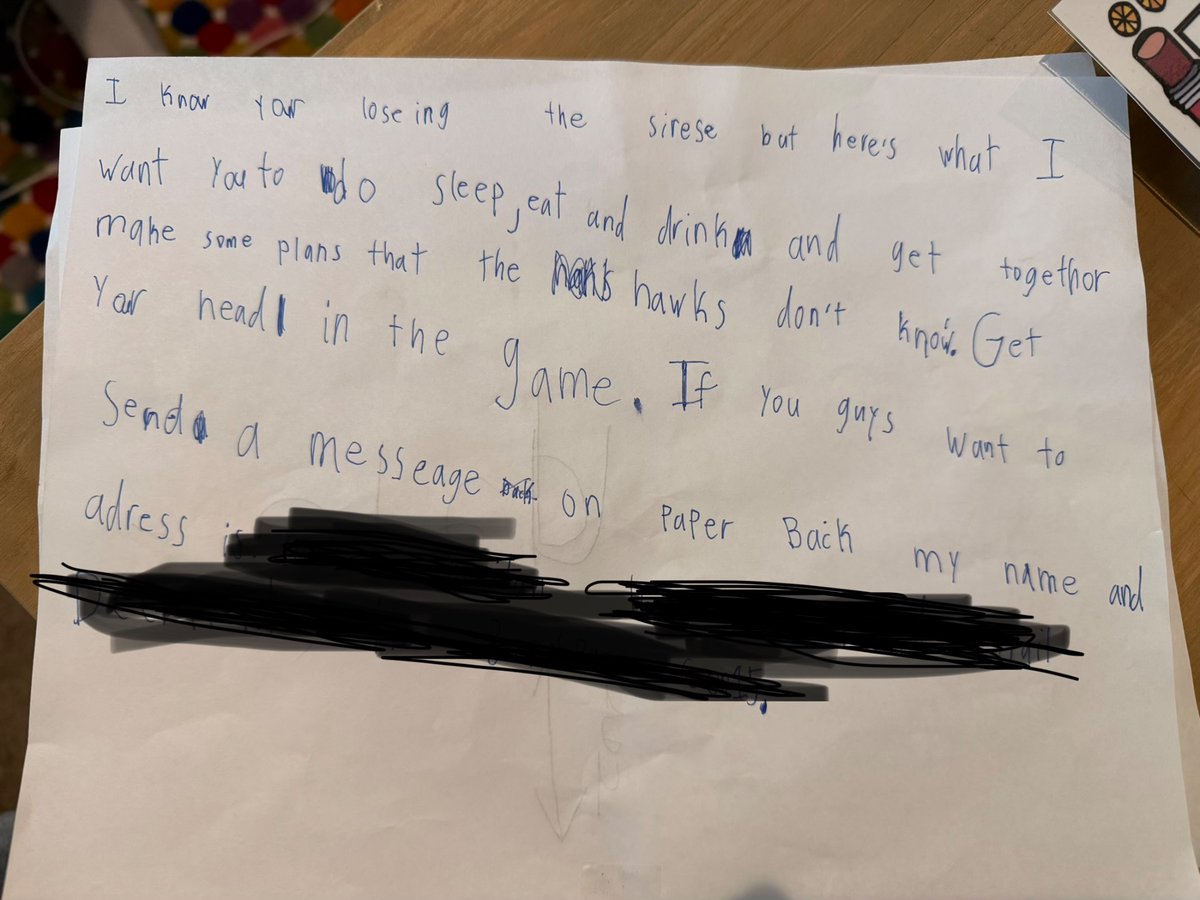 I know your loseing the sirese but here's what I
want you to do sleep, eat and drink and get togethor
make some plans that the hawks don't know. Get
your head in the game. If you guys want to
Send a messeage on paper Back my name and
adress is